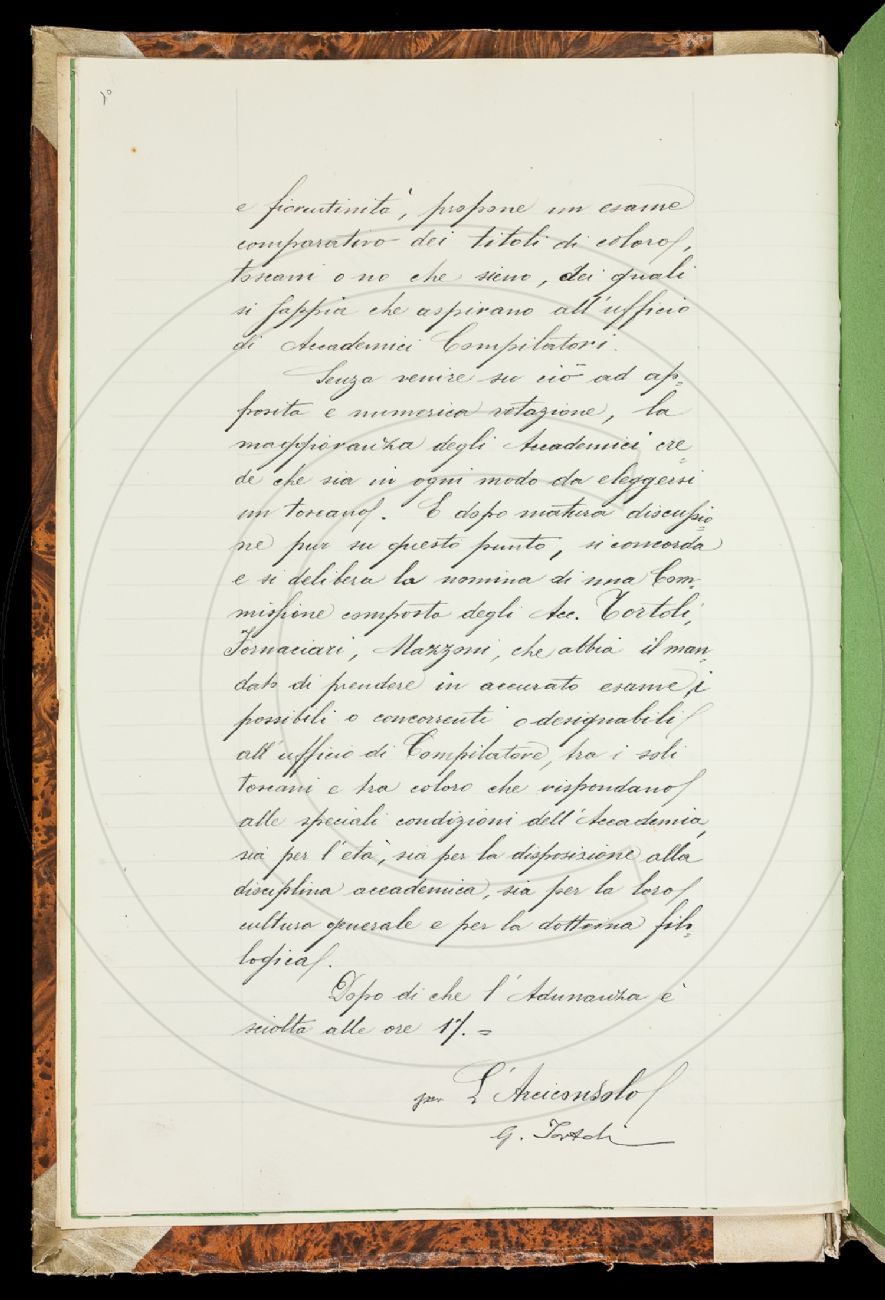 e fiorentinità, propone un esame
comparativo dei titoli di coloro,
toscani o no che sieno, dei quali
si sappia che aspirano all'ufficio
di Accademici Compilatori.
Senza venire su ciò ad ap-
posita e numerica votazione, la
maggioranza degli Accademici cre
de che sia in ogni modo da eleggersi
un toscano. E dopo matura discussio-
ne pur su questo punto, si concorda
e si delibera la nomina di una Com-
missione composta degli Acc. Tortoli,
Fornaciari, Mazzoni, che abbia il man-
dato di prendere in accurato esame i
possibili o concorrenti o designabili
all'ufficio di Compilatore, tra i soli
toscani e tra coloro che rispondano
alle speciali condizioni dell'Accademia,
sia per l'età, sia per la disposizione alla
disciplina accademica, sia per la loro
cultura generale e per la dottrina filo-
logica.
Dopo di che l'Adunanza è
sciolta alle ore 17. =
per L'Arciconsolo
G. Tortoli